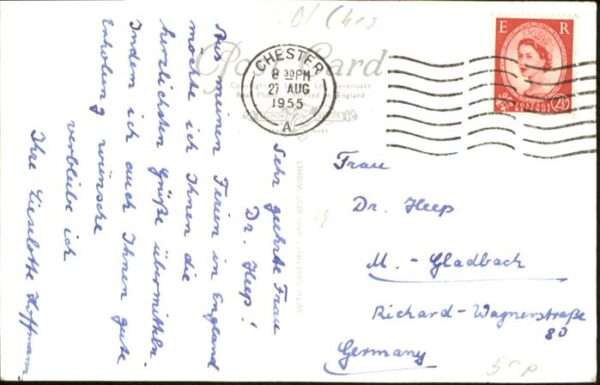 Sehr geehrte Frau
Dr. Heep!
Aus meinen Ferien in England
möchte ich Ihnen die
herzlichsten Grüße übermitteln.
Indem ich auch Ihnen gute
Erholung wünsche
verbleibe ich
Ihre Lieselotte Hoffmann
Post Card
CHESTER
8 30PM
27 AUG
1955
A
E R
Frau
Dr. Heep
M. - Gladbach
Richard-Wagnerstraße
80
Germany